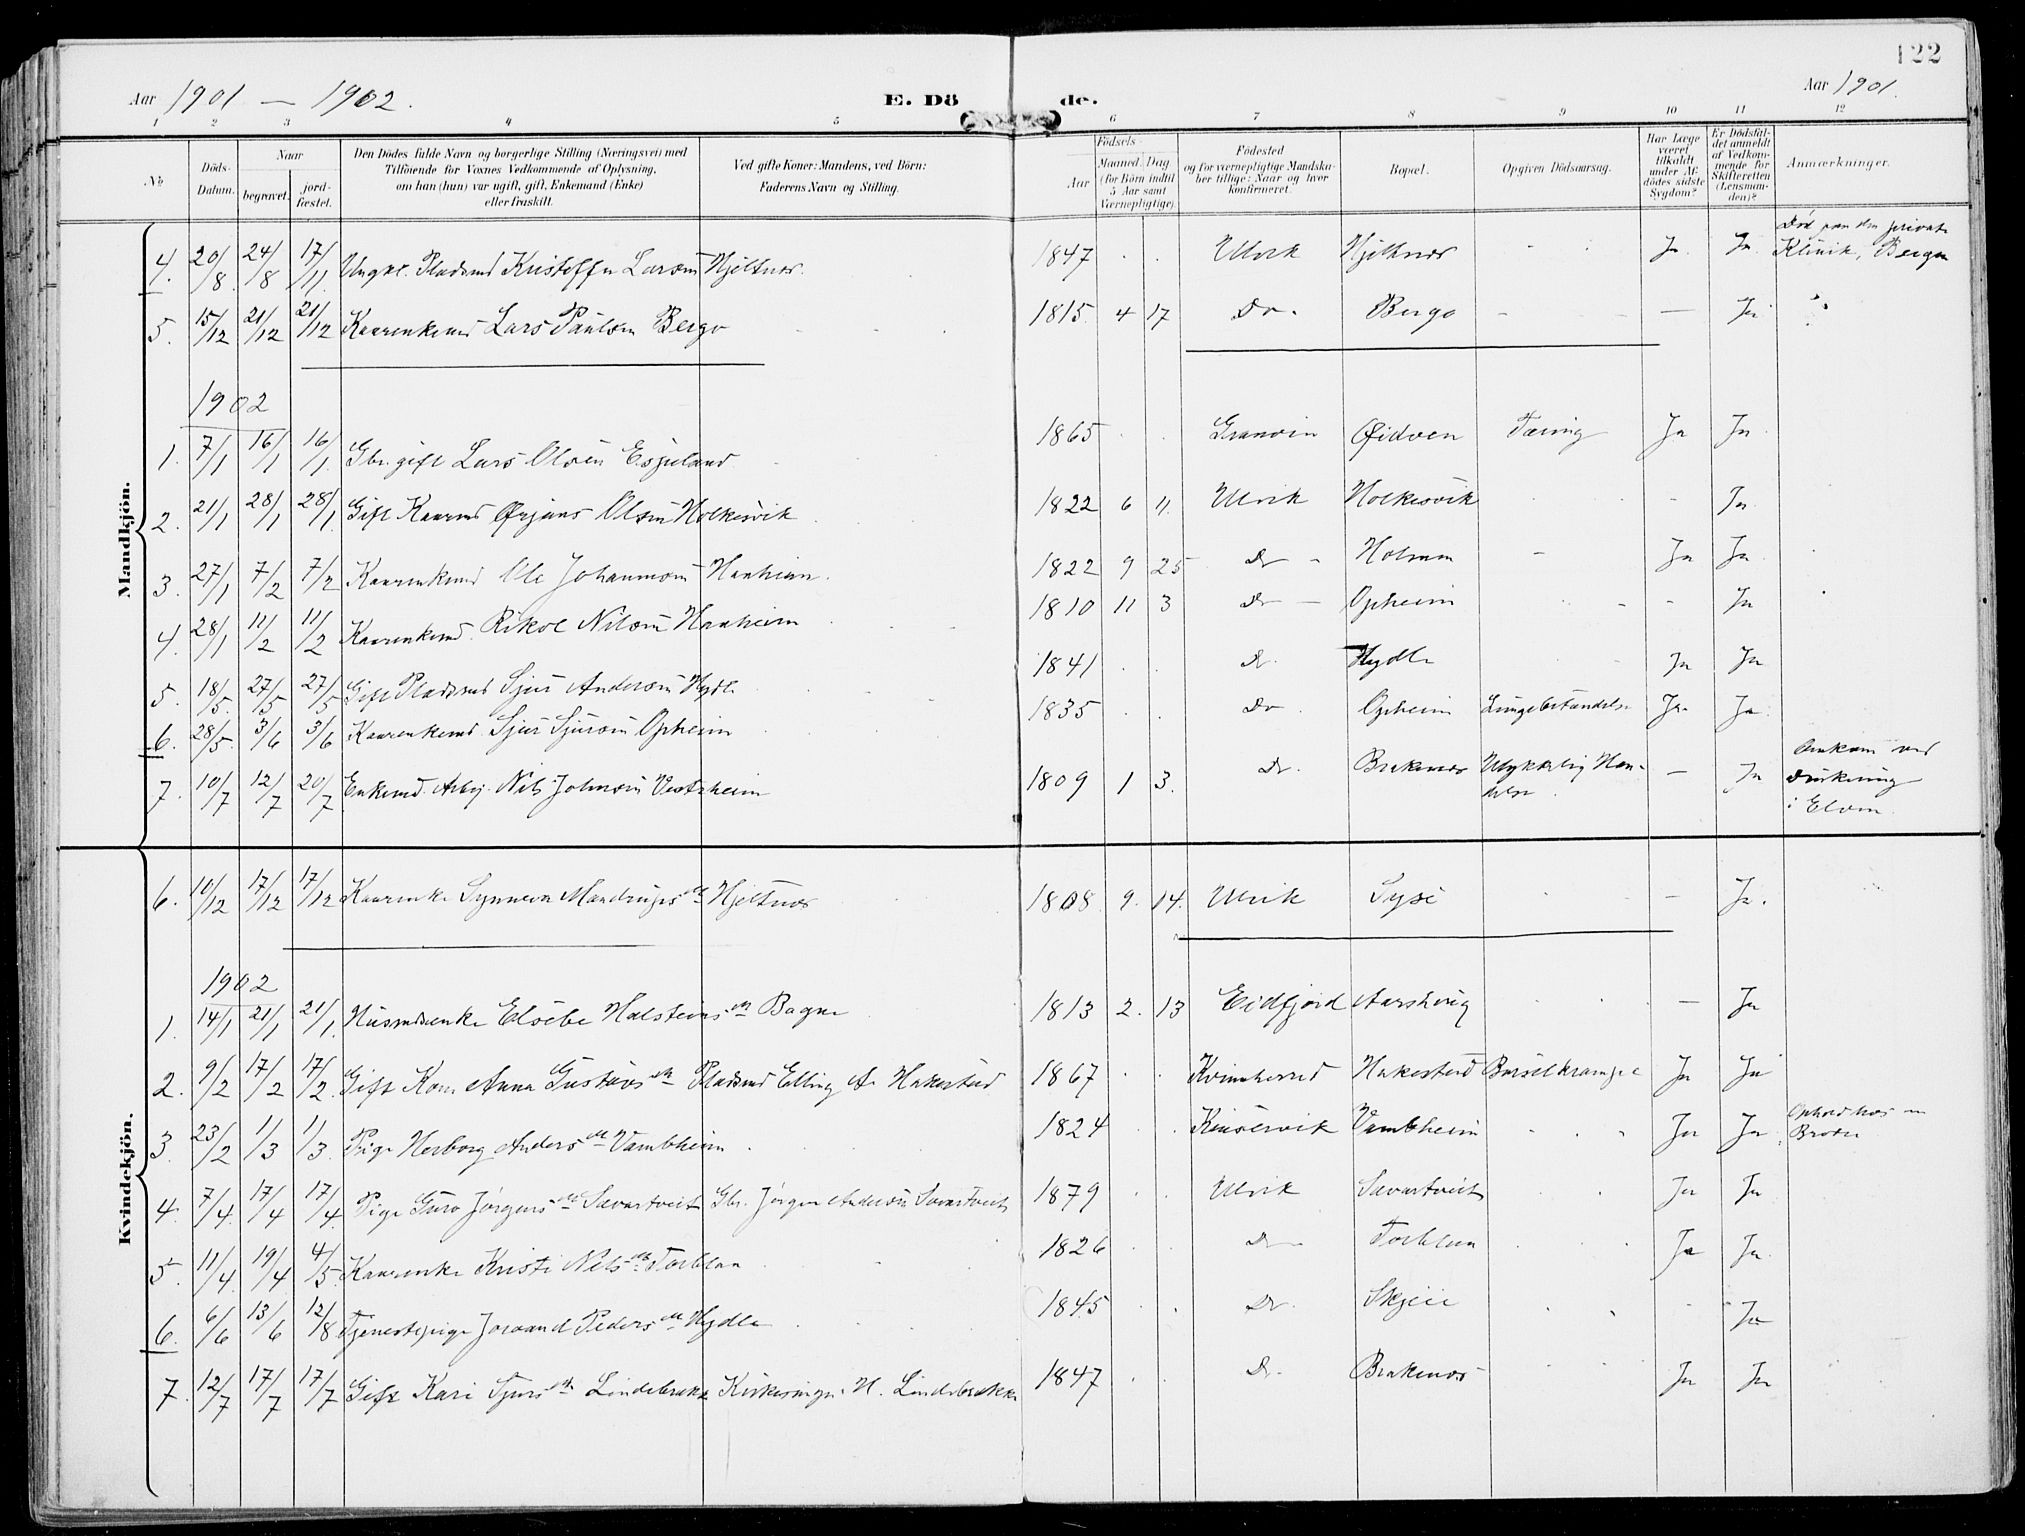 122
Aar 1901 — 1902.
E. Döde.
Aar 1901.
1 2 3 4 5 6 7 8 9 10 11 12
No
Döds-Datum.
Naar
begravet.
jord-fæstet.
Den Dödes fulde Navn og borgerlige Stilling (Næringsvei) med
Tilföiende for Voxnes Vedkommende af Oplysning,
om han (hun) var ugift, gift, Enkemand (Enke)
eller fraskilt.
Ved gifte Koner: Mandens, ved Börn:
Faderens Navn og Stilling.
Födsels-
Aar
Maaned. Dag
(for Börn indtil
5 Aar samt
Værnepligtige).
Födested
og for værnepligtige Mandska-
ber tillige: Naar og hvor
konfirmeret.
Bopæl.
Opgiven Dödsaarsag.
Har Læge
været
tilkaldt
under Af-
dödes sidste
Sygdom?
Er Dödsfal-
det anmeldt
af Vedkom-
mende for
Skifteretten
(Lensman-
den)?
Anmærkninger.
Mandkjön.
4. 20/8 24/8 17/11 Ungkl. Pladsmd Kristoffer Larsen Hjeltnes. 1847 Ulvik Hjeltnes Ja Ja Död paa den private
Klinik, Bergen
5. 15/12 21/12 21/12 Kaarenkemd Lars Paulsen Bergo 1815 4 17 Do. Bergo — Ja
1902
1. 7/1 16/1 16/1 Gbr. gift Lars Olsen Espeland 1865 Granvin Øidven Tæring Ja Ja
2. 21/1 28/1 28/1 Gift Kaarmd Ørjans Olsen Holkesvik 1822 6 11. Ulvik Holkesvik - Ja
3. 27/1 7/2 7/2 Kaarenkemd Ole Johannesen Haaheim. 1822 9 25 Do - Holmen - Ja Ja
4. 28/1 11/2 11/2 Kaarenkemd. Rikol Nilsen Haaheim 1810 11 3 Do - Opheim - Ja
5. 18/5 27/5 27/5 Gift Pladsmd Sjur Andersen Hydle 1841 Do. Hydle Ja Ja
6. 28/5 3/6 3/6 Kaarenkemd. Sjur Sjursen Opheim 1835 Do. Opheim Lungebetændelse Ja Ja
7. 10/7 12/7 20/7 Enkemd. Arbj. Nils Johnsen Vestrheim 1809 1 3. Do. Brakenes Ulykkelig Hæn-
delse — Ja Omkom ved
Drukning
i Elven.
Kvindekjön.
6. 10/12 17/12 17/12 Kaarenke Synneva Mandrupsdtr Hjeltnes 1808 9. 14. Ulvik Syse — Ja.
1902
1. 14/1 21/1 21/1 Husmdsenke Elsebe Halsteinsdtr Bagne 1813 2. 13 Eidfjord Aarshoug — Ja
2. 9/2 17/2 17/2 Gift Kone Anna Gustavsdtr Pladsmd Elling A. Hakestad 1867 Kvinnherred Hakestad Barselkrampe Ja Ja
3. 23/2 1/3 1/3 Pige Herborg Andersdtr Vambheim 1824 Kinservik Vambheim Ja Ja Ophold hos en
Broder
4. 7/4 17/4 17/4 Pige Guro Jørgensdtr Savartveit Gbr. Jørgen Andersen Savartveit 1879 Ulvik Savartveit Ja Ja
5. 11/4 19/4 4/5 Kaarenke Kristi Nilsdtr Torblaa 1826 Do Torblaa Ja Ja
6. 6/6 13/6 12/8 Tjenestepige Joraand Pedersdtr Hydle 1845 Do. Skjeie - Ja
7. 12/7 17/7 17/7 Gift Kari Sjursdtr Lindebrække Kirkesanger H. Lindebrække 1847 Do. Brakenes Ja Ja